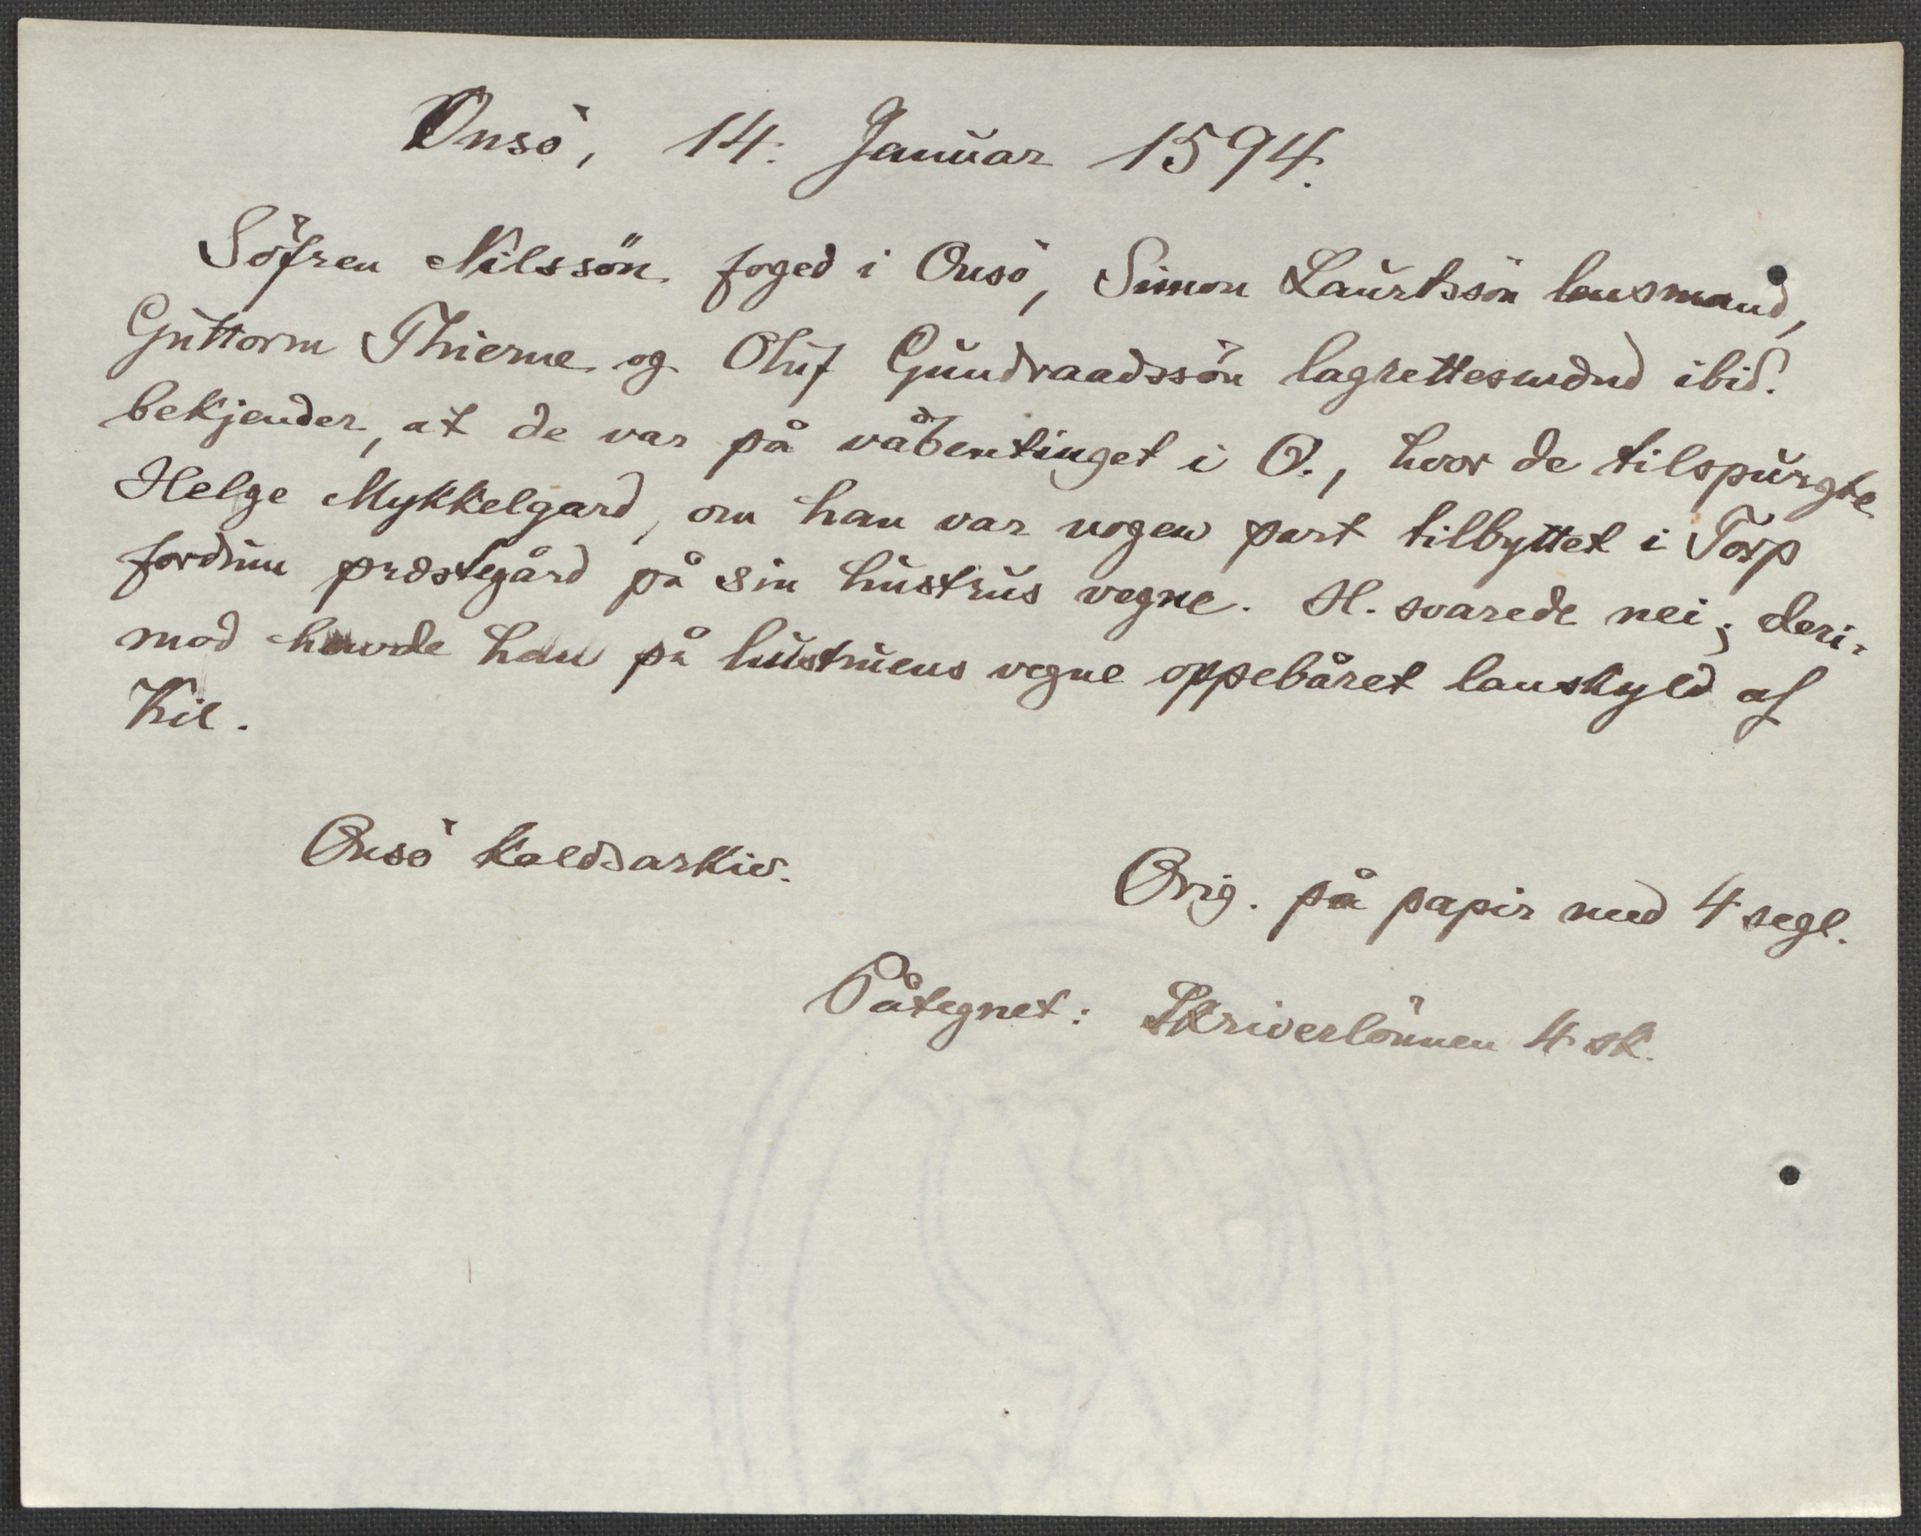 Onsö, 14. Januar 1594.
Söfren Nilssön foged i Onsö, Simon Laurtssön lensmand,
Guttorm Thieme og Oluf Gundraadssön lagrettesmænd ibid.
bekjender, at de var på våbentinget i O., hvor de tilspurgte
Helge Mykkelgard, om han var nogen part tilbyttet i Torp
fordum præstegård på sin hustrus vegne. H. svarede nei; deri-
mod havde han på hustruens vegne oppebåret lanskyld af
Kil.
Onsö kaldsarkiv.
Orig. på papir med 4 segl.
Påtegnet: Skriverlönnen 4 sk.